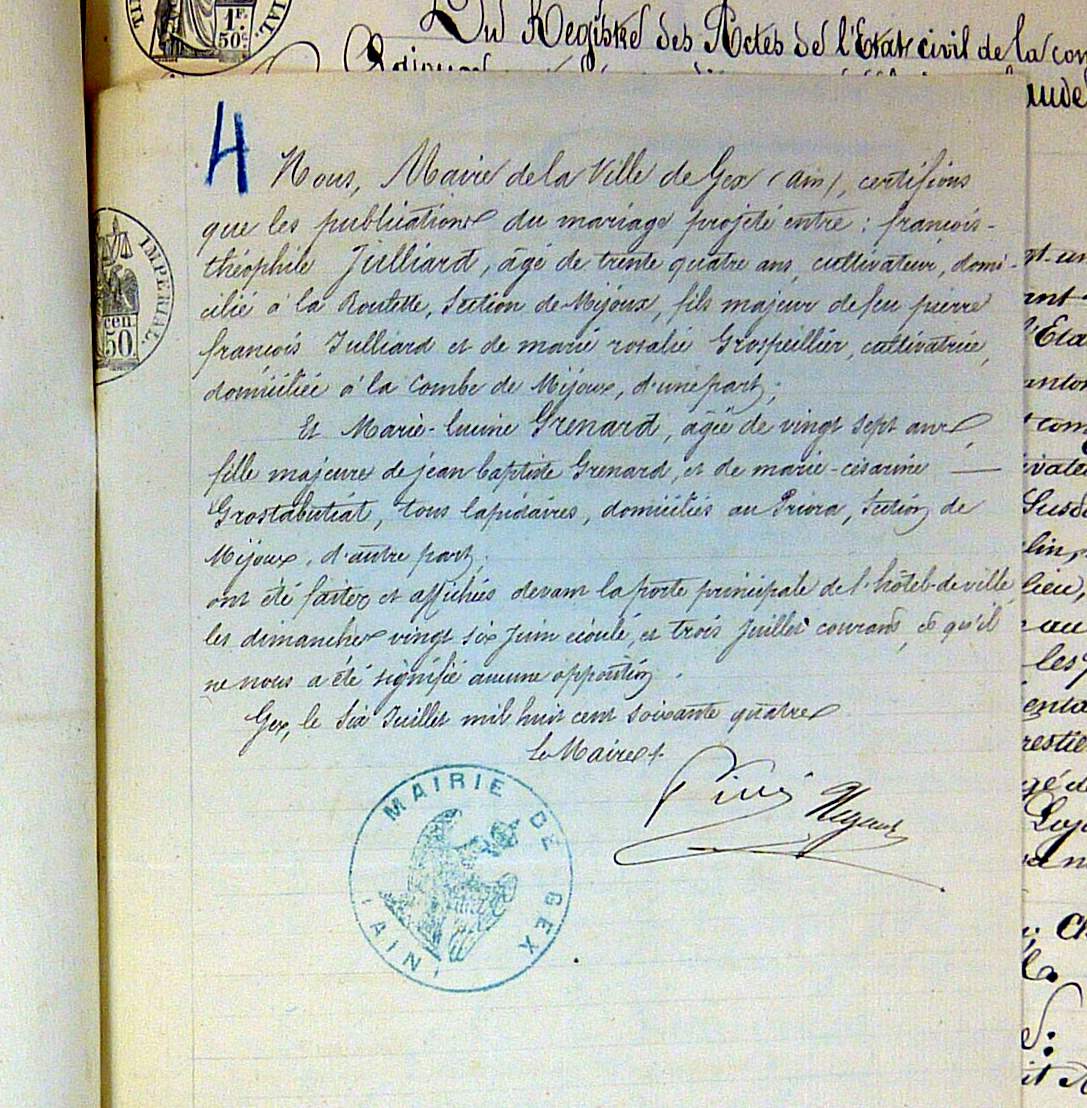 1F.
50c.
IAL.
Du Registre des Actes de l'Etat civil de la con
aude
4
Nous, Maire de la Ville de Gex (ain), certifions
que les publications du mariage projeté entre : françois-
théophile Julliard, âgé de trente quatre ans, cultivateur, domi-
cilié à la Boulette, Section de Mijoux, fils majeur de feu pierre
françois Julliard et de marie rosalie Grospeillier, cultivatrice,
domiciliée à la Combe de Mijoux, d'une part ;
Et Marie-lucine Grenard, âgée de vingt sept ans,
fille majeure de jean baptiste Grenard, et de marie-césarine —
Grostabutiat, tous lapidaires, domiciliés au Priora, Section de
Mijoux, d'autre part ;
ont été faites et affichées devant la porte principale de l'hôtel-de-ville
les dimanches vingt six Juin écoulé, et trois Juillet courant, et qu'il
ne nous a été signifié aucune opposition.
Gex, le Six Juillet mil huit cent soixante quatre
Le Maire
MAIRIE DE GEX
(AIN)
IMPERIAL.
cen.
50